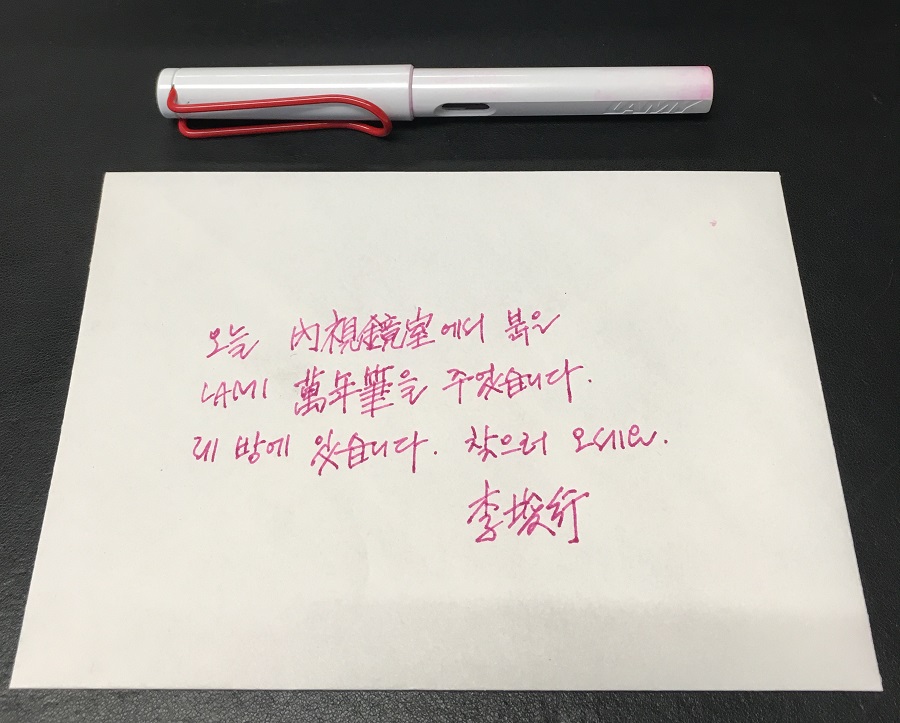 LAMY
오늘 內視鏡室에서 붉은
LAMI 萬年筆을 주웠습니다.
제 방에 있습니다. 찾으러 오세요.
李埈行